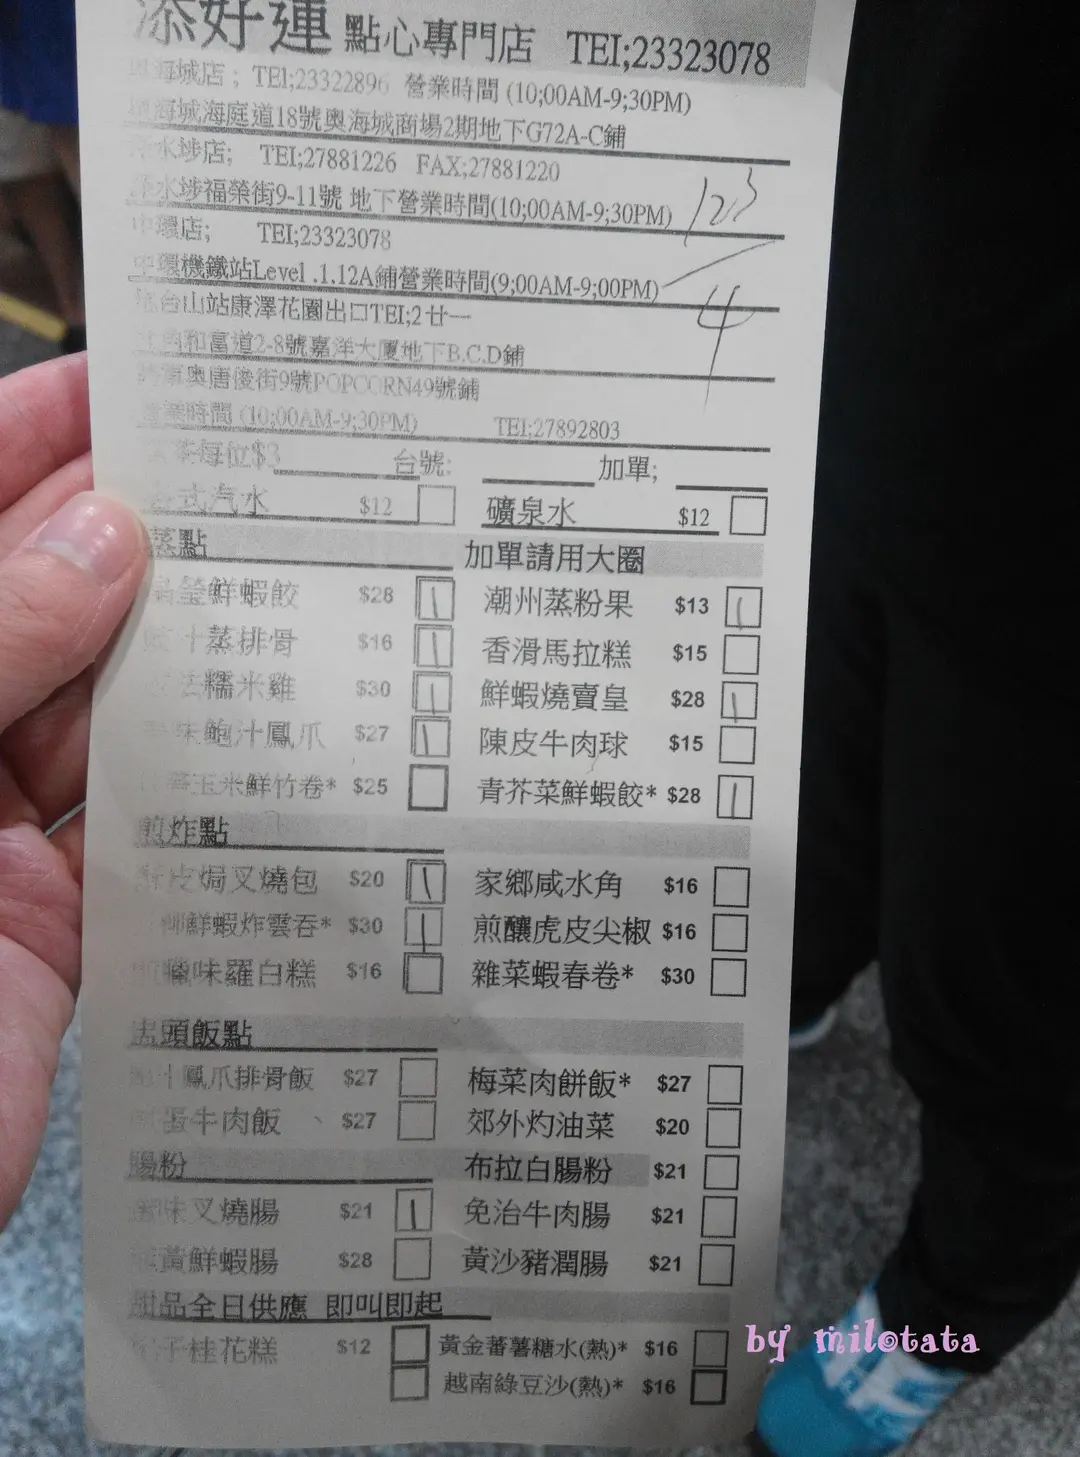 添好運 點心專門店 TEI;23323078
海城店; TEI;23322896 營業時間 (10;00AM-9;30PM)
海城海庭道18號奧海城商場2期地下G72A-C鋪
水埗店; TEI;27881226 FAX;27881220
水埗福榮街9-11號 地下營業時間(10;00AM-9;30PM)
123
中環店; TEI;23323078
中環機鐵站Level .1.12A鋪營業時間(9;00AM-9;00PM)
4
台山站康澤花園出口TEI;2廿一
角和富道2-8號嘉洋大廈地下B.C.D鋪
軍奧唐俊街9號POPCORN49號鋪
營業時間 (10;00AM-9;30PM) TEI;27892803
茶每位$3 台號: 加單;
式汽水 $12 礦泉水 $12
蒸點 加單請用大圈
晶瑩鮮蝦餃 $28 潮州蒸粉果 $13
汁蒸排骨 $16 香滑馬拉糕 $15
法糯米雞 $30 鮮蝦燒賣皇 $28
味鮑汁鳳爪 $27 陳皮牛肉球 $15
玉米鮮竹卷* $25 青芥菜鮮蝦餃* $28
煎炸點
酥皮焗叉燒包 $20 家鄉咸水角 $16
鮮蝦炸雲吞* $30 煎釀虎皮尖椒 $16
煎臘味羅白糕 $16 雜菜蝦春卷* $30
盅頭飯點
汁鳳爪排骨飯 $27 梅菜肉餅飯* $27
蛋牛肉飯 、 $27 郊外灼油菜 $20
腸粉 布拉白腸粉 $21
味叉燒腸 $21 免治牛肉腸 $21
韮黃鮮蝦腸 $28 黃沙豬潤腸 $21
甜品全日供應 即叫即起
杞子桂花糕 $12 黃金蕃薯糖水(熱)* $16
越南綠豆沙(熱)* $16
by milotata